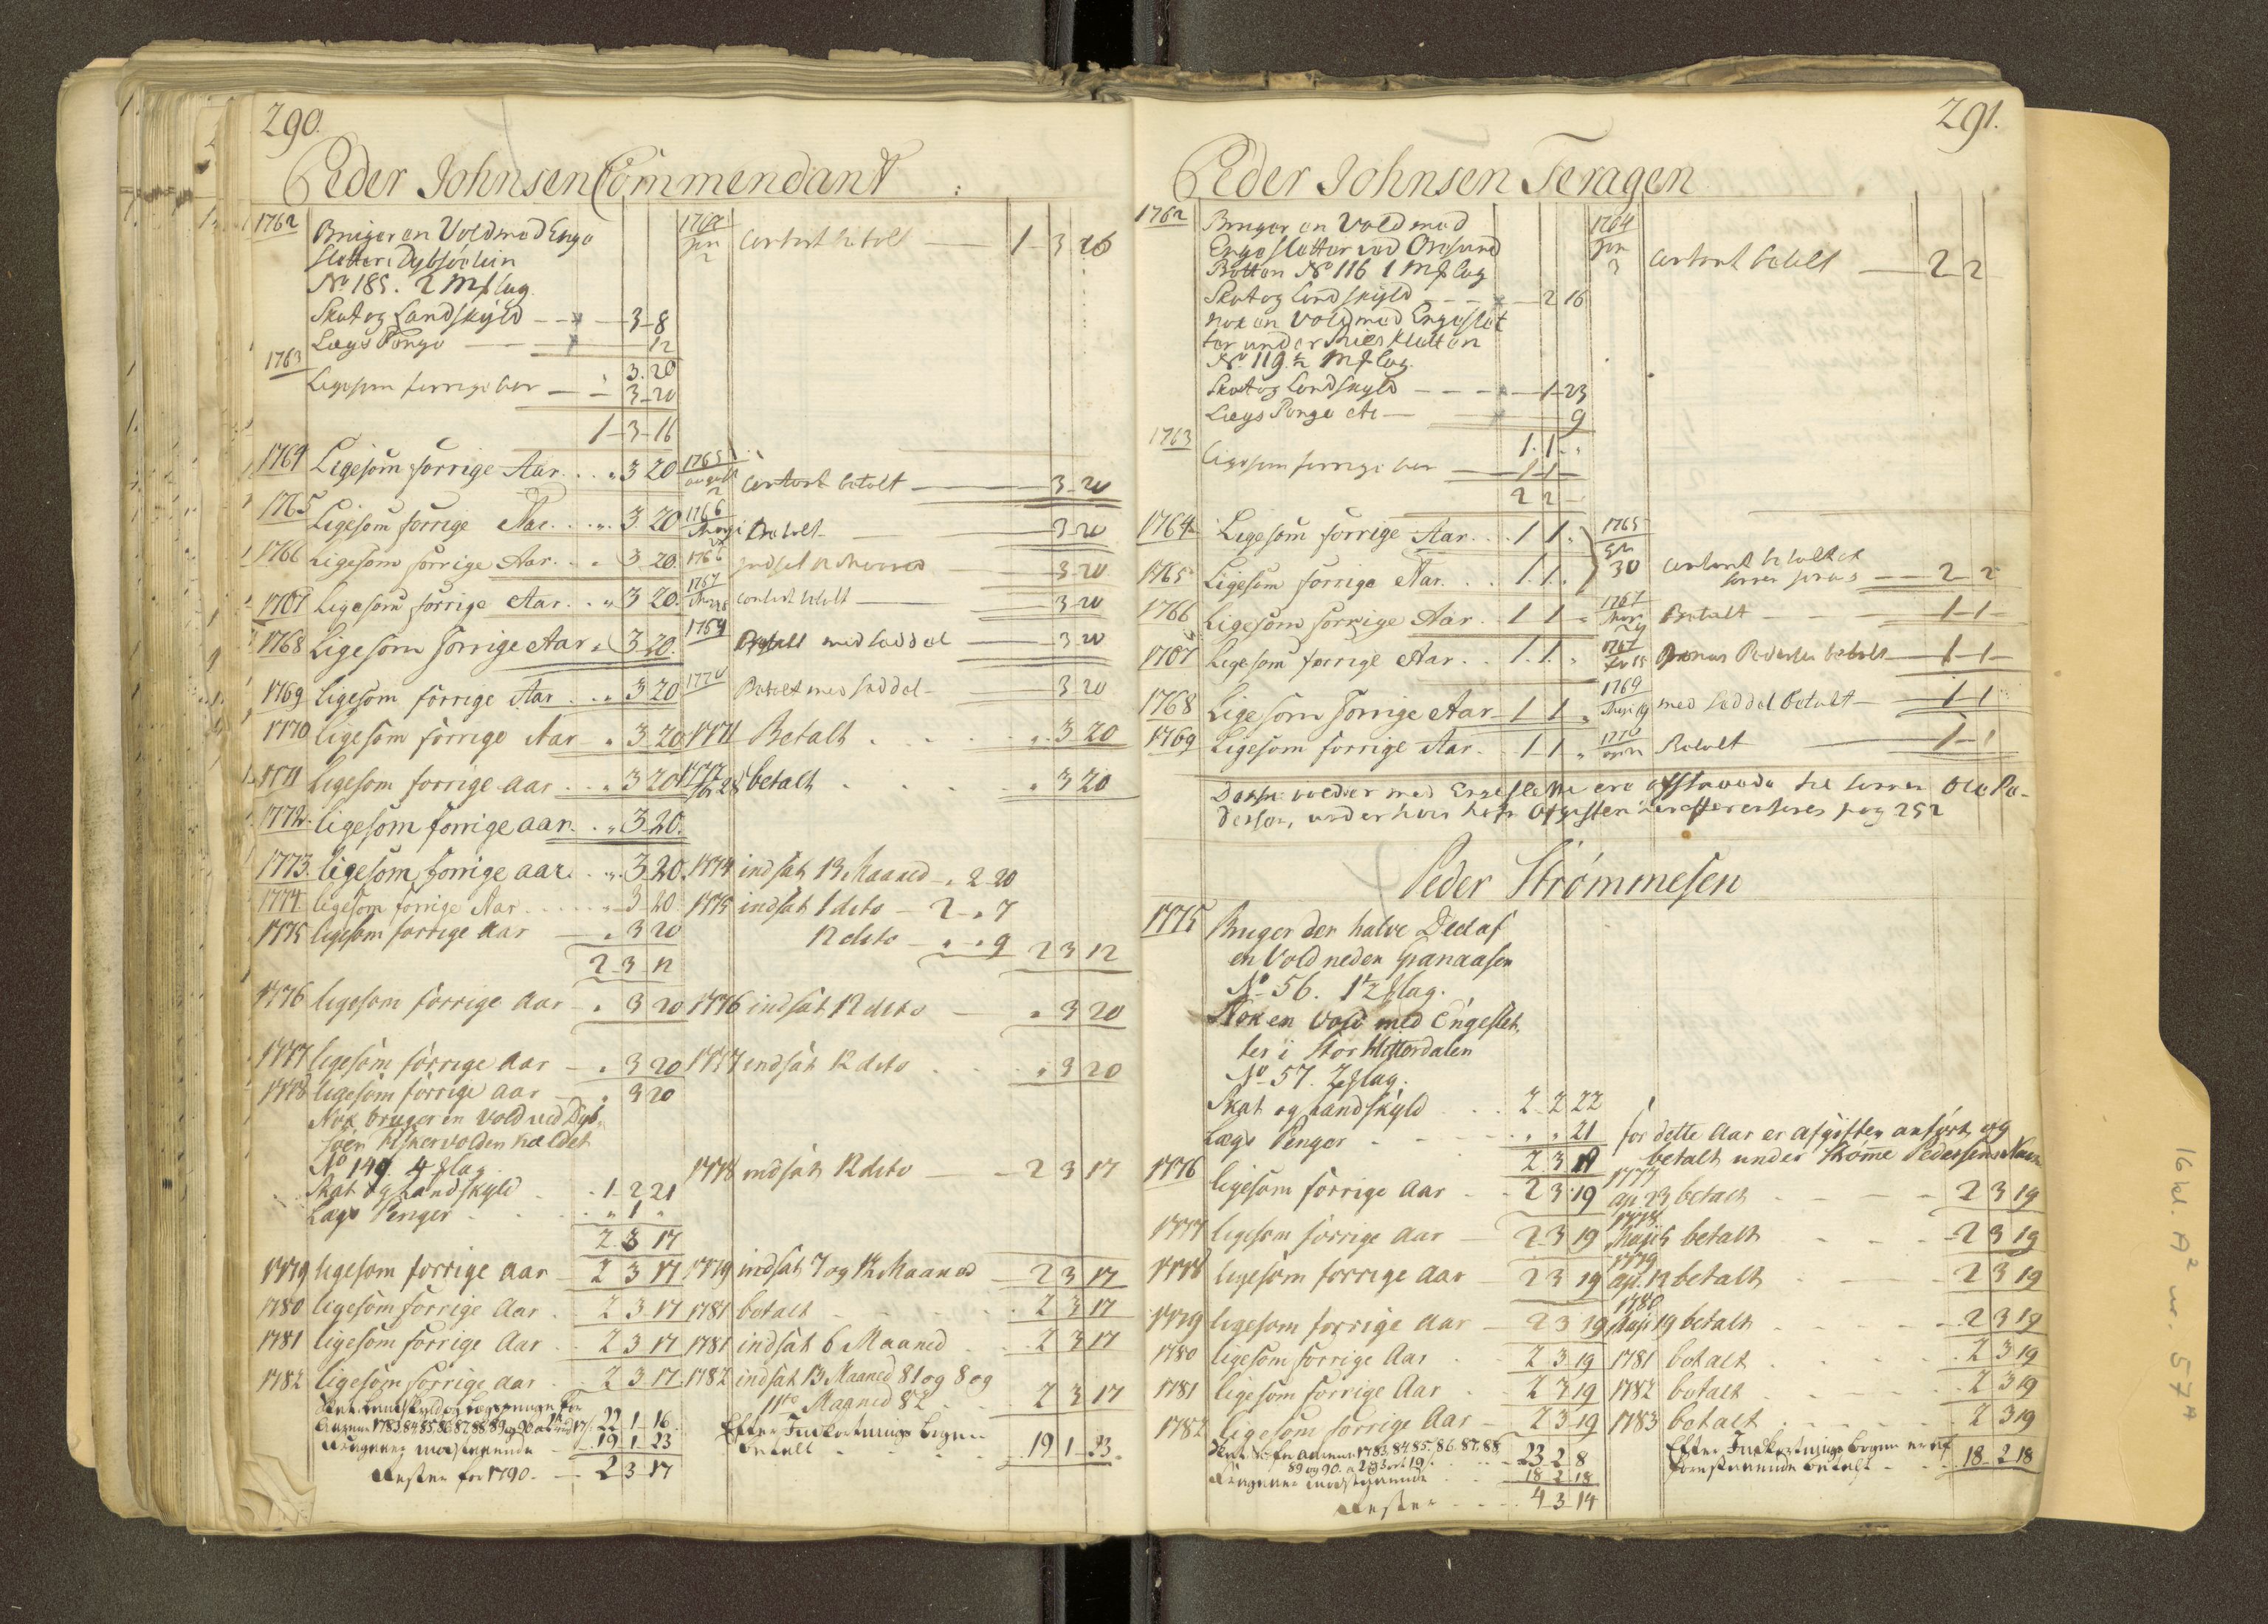 290.
Peder Johnsen Commendant
1762 Bruger en Vold med Enge 1764 Jan 2 contant betalt — 1 3 16
Sletter i Dybsöelien
No 185. 2 Mf lag
Skat og Landskyld — 3 8
Lægs Penge — 12
3. 20
1763 Ligesom forrige Aar — 3 20
1 3 16
1764 Ligesom forrige Aar . . „ 3 20 1765 august 2 contant betalt — 3 20
1765 Ligesom forrige Aar . . „ 3 20 1766 Betalt — 3 20
1766 Ligesom forrige Aar . . „ 3 20. 1766 — 3 20
1767 Ligesom forrige Aar . . „ 3 20. 1767 contant betalt — 3 20
1768 Ligesom forrige Aar „ 3 20. 1769 Betalt med Seddel — 3 20
1769 ligesom forrige Aar . . „ 3 20 1770 Betalt med Seddel — 3 20
1770 ligesom forrige Aar „ 3 20 1771 Betalt . . . „ 3 20
1771 ligesom forrige aar . . „ 3 20 1772 28 betalt . . . „ 3 20
1772. ligesom forrige aar . . „ 3 20.
1773. ligesom forrige aar . . „ 3 20. 1774 indsat 13 Maaned — „ 2 20
1774 ligesom forrige Aar . . . „ 3 20 1775 indsat 1 deto — 2 „ 7
1775 ligesom forrige aar — „ 3 20 12 deto — „ „ 9 2 3 12
2 3 12
1776 ligesom forrige aar — „ 3 20 1776 indsat 12 deto — „ 3 20
1777 ligesom forrige aar — „ 3 20 1777 indsat 12 deto . . „ 3 20
1778 ligesom forrige aar — „ 3 20
Nok bruger en vold ved Dyb-
söen Fiskervolden kaldet
No 149. 4 f lag
Skat og Landskyld . . 1 2 21 1778 indsat 12 deto — 2 3 17
Lægs Penger . . „ 1 „
2 3 17
1779 ligesom forrige aar — 2 3 17 1779 indsat 7 og 12 Maaned — 2 3 17
1780 ligesom forrige Aar . 2 3 17 1781 betalt . . . 2 3 17
1781 ligesom forrige Aar . . 2 3 17 1781 indsat 6 Maaned . . 2 3 17
1782 ligesom forrige aar . . 2 3 17. 1782 indsat 13 Maaned 81 og 8 og
11te Maaned 82 . . 2 3 17
Skat Landskyld og Lægspenge for
Aarene 1783, 84, 85, 86, 87, 88, 89 og 90 22 1 16. Efter Indkortnings Bogen
modstaaende — 19 1 23 betalt . . 19 1 23.
Rester for 1790. — 2 3 17
291.
Peder Johnsen Feragen
1762 Bruger en Vold med 1764 Jan 3 contant betalt — 2 2
Enge Sletter ved Oresund
Botten No 116 1 Mf lag
Skat og Landskyld — 2 16
Nok en Vold med Engeslet
ter under
No 119 ½ Mf lag.
Skat og Landskyld — 1 23
Lægs Penge — 9
1. 1. „
1763 Ligesom forrige Aar — 1 1 —
2 2 —
1764 Ligesom forrige Aar . . 1 1 „ 1765
30 contant betalt
1765 Ligesom forrige Aar . . 1. 1. „ — 2 2
1766 Ligesom forrige Aar . 1 1 „ 1767 Betalt — 1 1
1767 Ligesom forrige Aar . . 1. 1. „ 1767 15 Pedersen betalt — 1 1
1768 Ligesom forrige Aar 1 1 „ 1769 19 med Seddel betalt — 1 1
1769 Ligesom forrige Aar . 1 1 „ 1770 Betalt — 1 1
Disse volder med Engeslette ere afstaaede til Ole Pe-
dersen, under hvis pag 252
Peder Strömmesen
1775 Bruger den halve Deel af
en Vold neden Granaasen
No 56. 1½ f lag.
Nok en Vold med Engeslet
ter i Stor Hitterdalen
No 57. 2 f lag.
Skat og Landskyld . . 2 2 22
Lægs Penger . . . „ „ 21 for dette Aar er afgiften anfört og
2 3 19 betalt under Strömme Pedersens Navn
1776 ligesom forrige Aar . . 2 3 19 1777 apr. 23 betalt . . . 2 3 19
1777 ligesom forrige Aar — 2 3 19 1778 Maji 5 betalt . . . 2 3 19
1778 ligesom forrige Aar — 2 3 19 1779 apr. 12 betalt . . . 2 3 19
1779 ligesom forrige Aar — 2 3 19 1780 Maji 19 betalt . . . 2 3 19
1780 ligesom forrige Aar . . 2 3 19 1781 betalt . . . 2 3 19
1781 ligesom forrige Aar . . 2 3 19 1782 betalt . . . 2 3 19
1782 ligesom forrige Aar — 2 3 19 1783 betalt . . . 2 3 19
Skat for Aarene 1783, 84, 85, 86, 87, 88 Efter Indkortnings Bogen er
89 og 90. 23 2 8 foranstaaende betalt . . 18 2 18
modstaaende . . 18 2 18
Rester . . . 4 3 14
16 kl. A² nr. 57 A